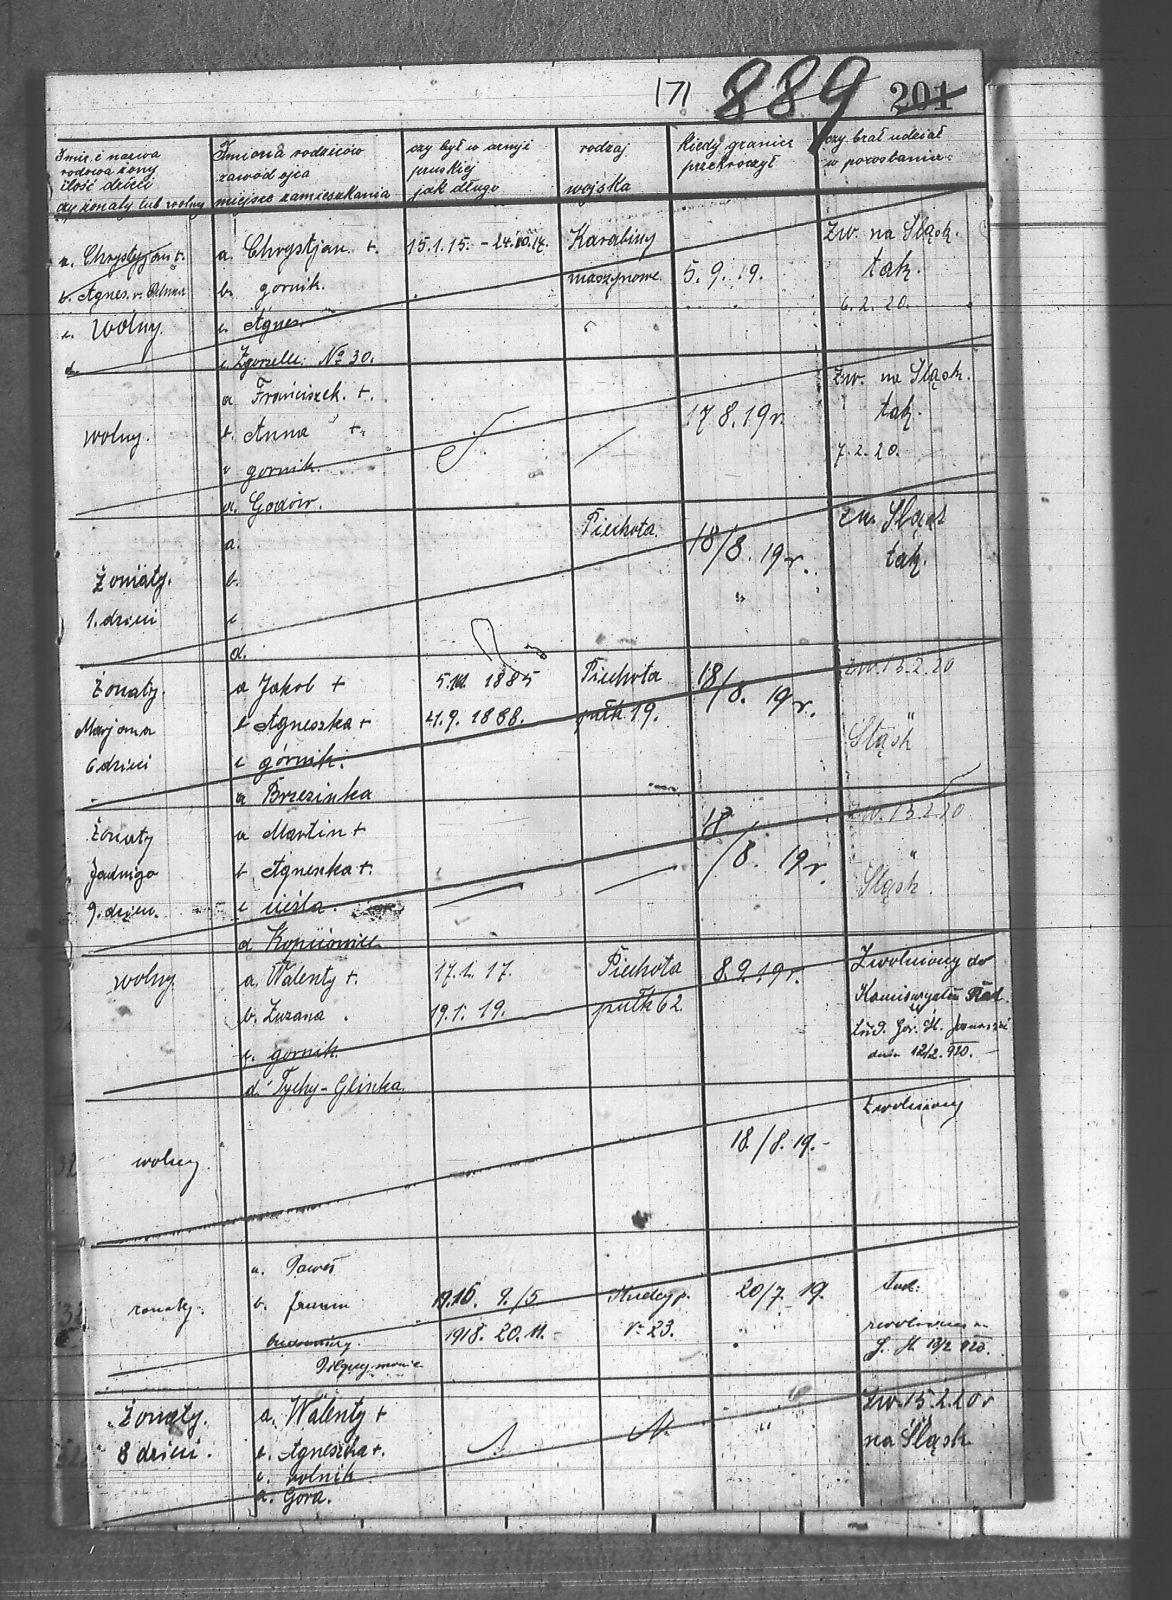 171 889 201
Imię i nazwa
rodowa żony
ilość dzieci
czy żonaty lub wolny
Imiona rodziców
zawód ojca
miejsce zamieszkania
czy był w armji
pruskiej
jak długo
rodzaj
wojska
Kiedy granicę
przekroczył
czy brał udział
w powstaniu
a. Chrystjan +.
b. Agnes
c. Wolny.
d.
a. Chrystjan +.
b. gornik.
c. Agnes.
Zgorzelec No 30.
15.1.15. - 24.10.17.
Karabiny
maszynowe.
5.9.19.
Zw. na Śląsk.
tak.
6.2.20.
wolny.
a Franciszek +.
b. Anna +.
c gornik.
d. Godów.
17.8.19r.
Zw. na Śląsk.
tak.
7.2.20.
Żonaty.
1. dzieci
a.
b.
c
d.
Piechota.
18/8. 19r.
"
Śląsk
tak.
Żonaty.
Marjana
6 dzieci
a Jakob +
b Agneszka +
c górnik.
d Brzezinka
1885
1888.
Piechota
pułk 19.
18/8. 19r.
Zw. 15.2.20
"
Śląsk
Żonaty
Jadwiga
9. dzieci.
a Martin +
b Agneszka +.
c cieśla.
d Kopciowice
18/8. 19r.
Zw. 15.2.20
"
Śląsk
wolny
a. Walenty +.
b. Zuzana.
c. gornik.
d. Tychy-Glinka.
17.1.17.
19.1.19.
Piechota
pułk 62.
8.9.19r.
Zwolniony do
dnia 12/2. 920.
wolny.
18./8. 19.-
Zwolniony
żonaty.
a. Paweł
b.
1916. 9./5
1918. 20.11.
23.
20/7. 19.
tak.
Żonaty.
8 dzieci.
a. Walenty +
b. Agneszka +.
c. rolnik
d. Gora.
"
Zw. 15.2.20r
na Śląsk